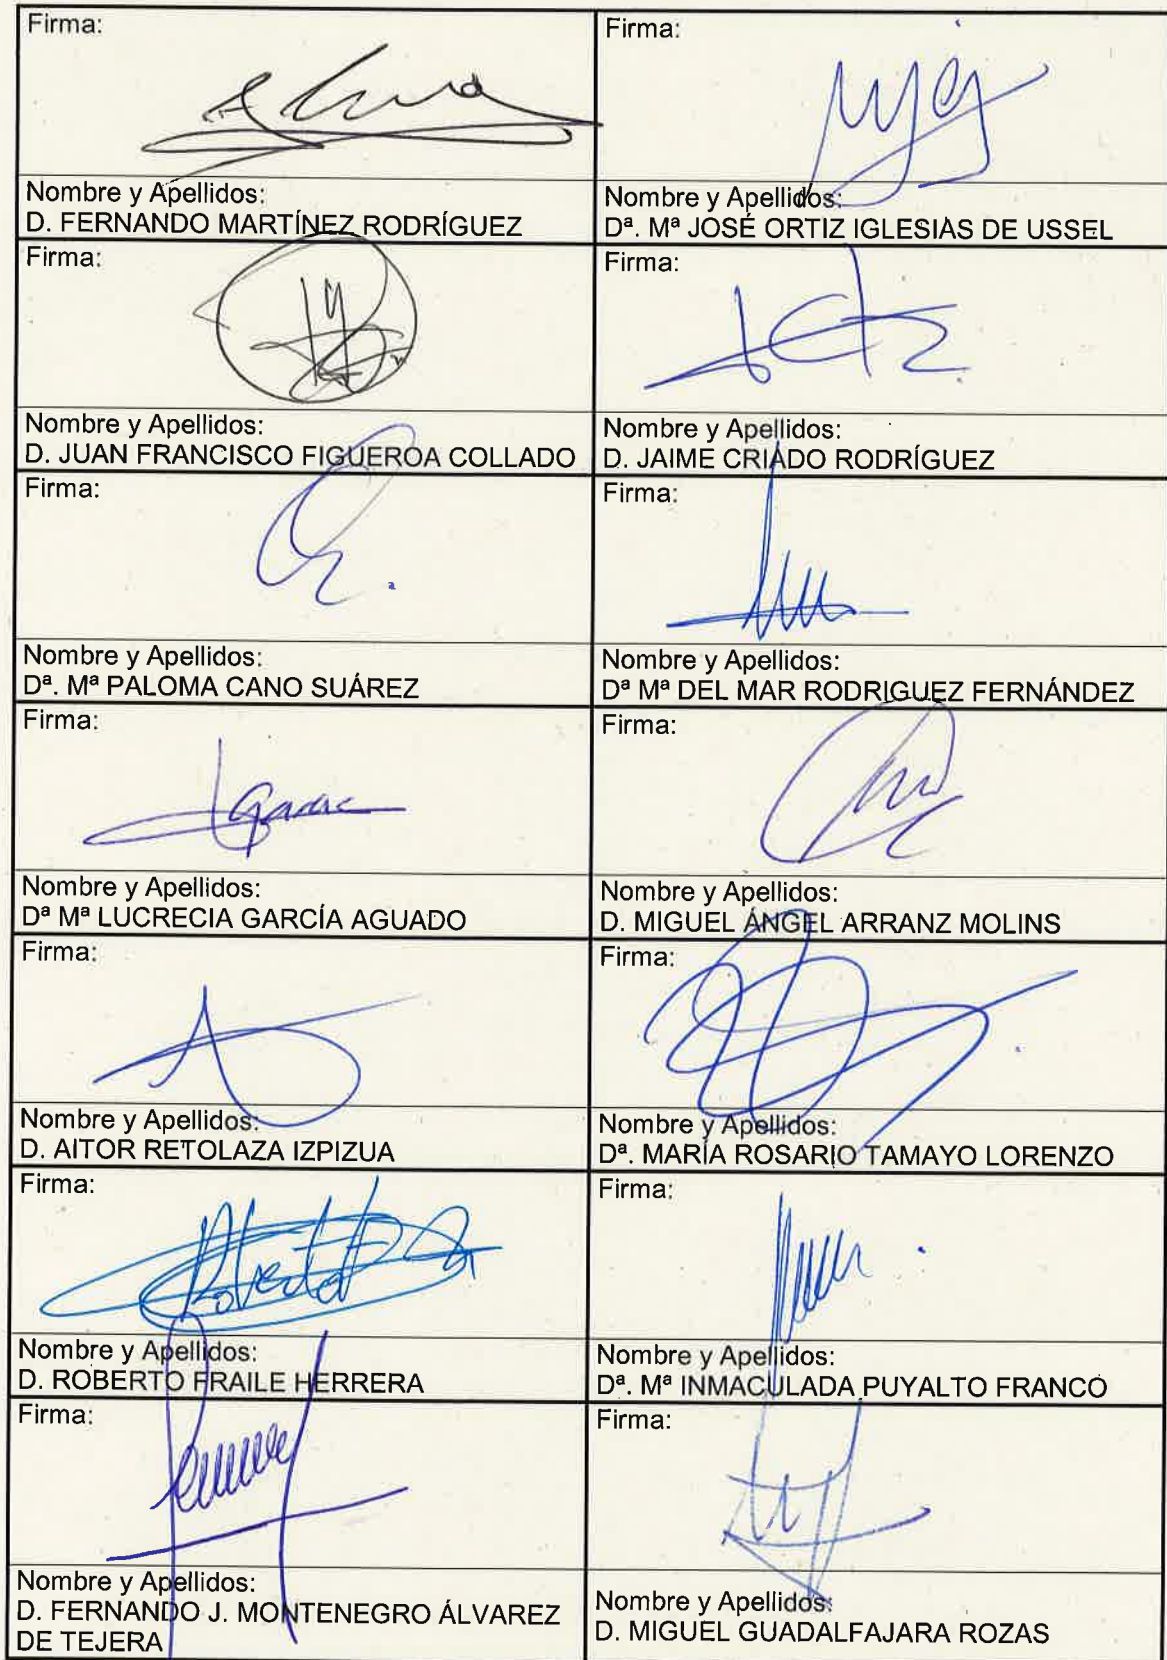 Firma:
Firma:
Nombre y Apellidos:
D. FERNANDO MARTÍNEZ RODRÍGUEZ
Nombre y Apellidos:
Dª. Mª JOSÉ ORTIZ IGLESIAS DE USSEL
Firma:
Firma:
Nombre y Apellidos:
D. JUAN FRANCISCO FIGUEROA COLLADO
Nombre y Apellidos:
D. JAIME CRIADO RODRÍGUEZ
Firma:
Firma:
Nombre y Apellidos:
Dª. Mª PALOMA CANO SUÁREZ
Nombre y Apellidos:
Dª Mª DEL MAR RODRIGUEZ FERNÁNDEZ
Firma:
Firma:
Nombre y Apellidos:
Dª Mª LUCRECIA GARCÍA AGUADO
Nombre y Apellidos:
D. MIGUEL ÁNGEL ARRANZ MOLINS
Firma:
Firma:
Nombre y Apellidos:
D. AITOR RETOLAZA IZPIZUA
Nombre y Apellidos:
Dª. MARÍA ROSARIO TAMAYO LORENZO
Firma:
Roberto
Firma:
Nombre y Apellidos:
D. ROBERTO FRAILE HERRERA
Nombre y Apellidos:
Dª. Mª INMACULADA PUYALTO FRANCO
Firma:
Firma:
Nombre y Apellidos:
D. FERNANDO J. MONTENEGRO ÁLVAREZ
DE TEJERA
Nombre y Apellidos:
D. MIGUEL GUADALFAJARA ROZAS